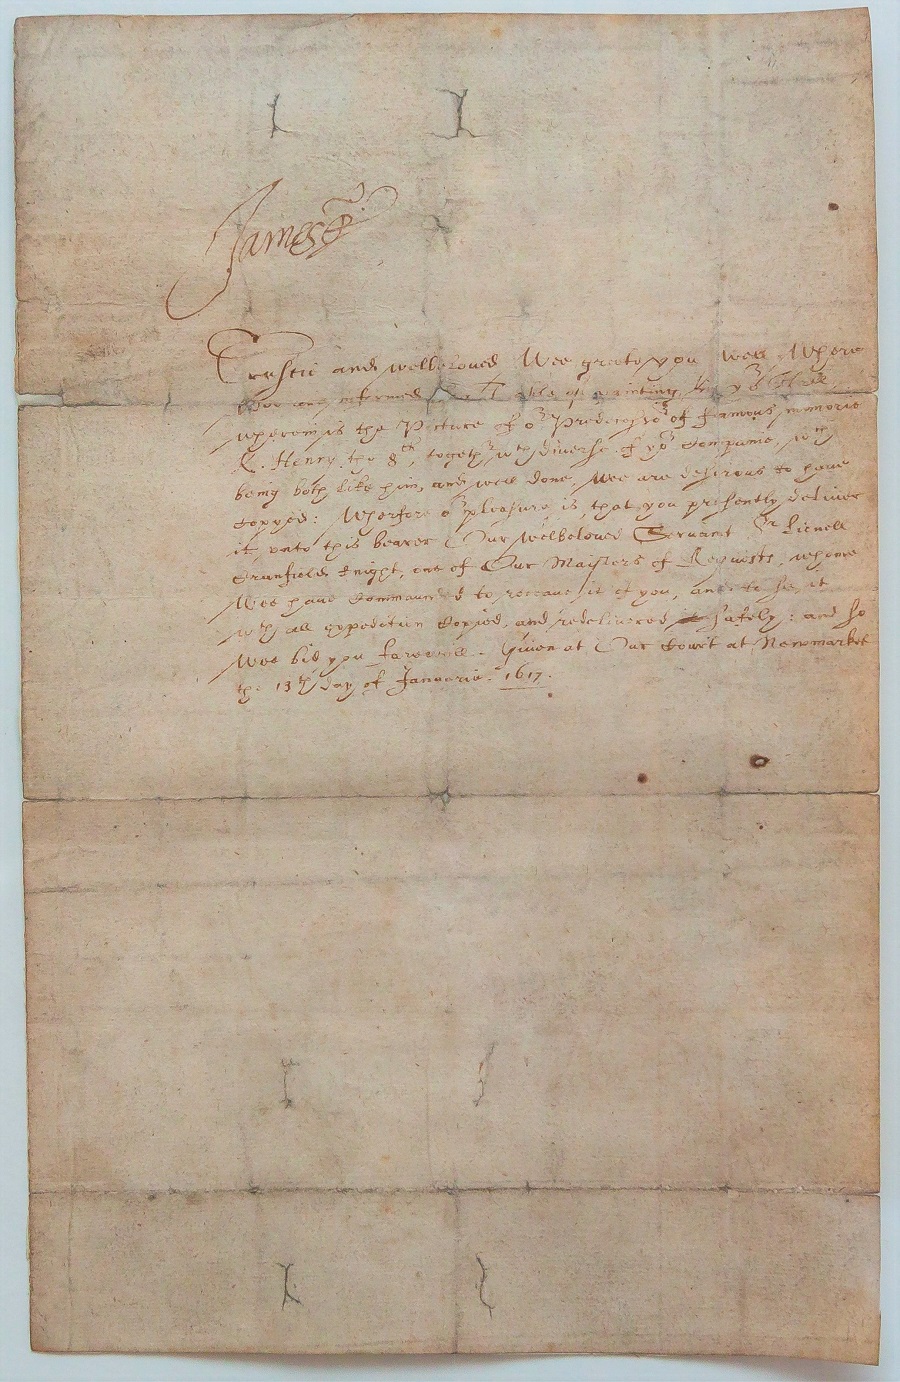 James R
Trustie and welbeloved Wee greete you well. Where
Wee are informed of a Table of painting in yor Hall,
wherein is the Picture of or Predecessor of famous memorie
K. Henry the 8th, togethr wth diverse of yor Companie, wch
being both like him, and well done, Wee are desirous to have
copyed: Wherfore or pleasure is, that you presently deliver
it unto this bearer Our Welbeloved Servant Sr Lionell
Cranfield knight, one of Our Maisters of Requests, whome
Wee have commaunded to receave it of you, and to see it
wth all expedition copied, and redelivered safely: and so
Wee bid you farewell. Given at Our Court at Newmarket
the 13th day of Januarie. 1617.